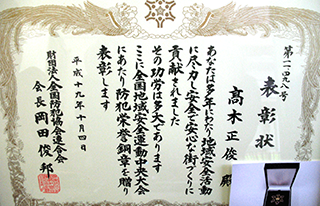 第一一四九八号
表彰状
高木正俊 殿
あなたは多年にわたり地域安全活動
に尽力し安全で安心な街づくりに
貢献されました
その功労は多大であります
ここに全国地域安全運動中央大会
にあたり防犯栄誉銅章を贈り
表彰します
平成十九年十月四日
財団法人全国防犯協会連合会
会長 岡田俊邦